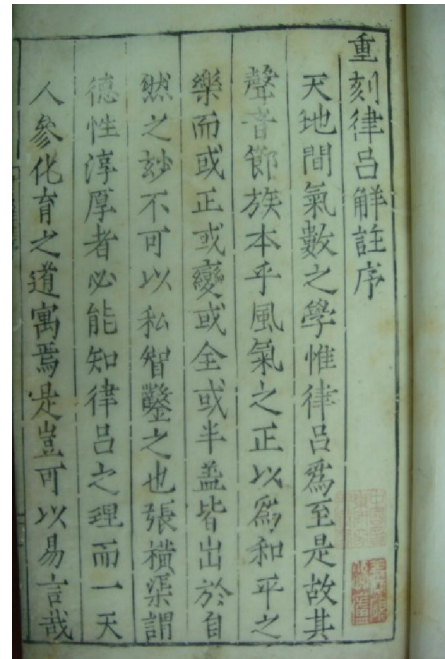 重刻律呂解註序
天地間氣數之學惟律呂爲至是故其
聲音節族本乎風氣之正以爲和平之
樂而或正或變或全或半盖皆出於自
然之妙不可以私智鑿之也張橫渠謂
德性淳厚者必能知律呂之理而一天
人參化育之道寓焉是豈可以易言哉